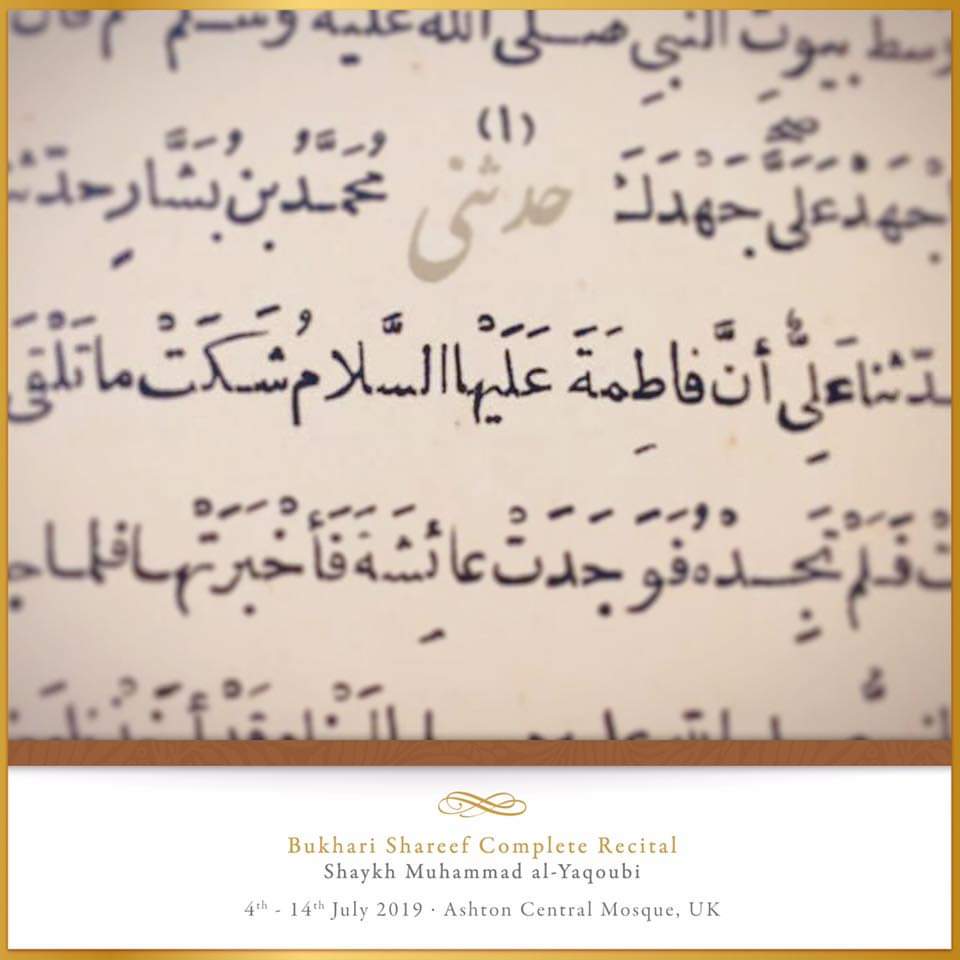 وسط بيوت النبي صلى الله عليه وسلم
(١)
جَهْدَ عَلَى جَهْدِكَ حدثنى مُحَمَّدُ بن بَشَّارٍ
عَلِىٌّ أَنَّ فاطِمَةَ عَلَيْها السَّلامُ شَكَتْ ما تَلْقَى
فَلَمْ تَجِدْهُ فَوَجَدَتْ عائِشَةَ فَأَخْبَرَتْها فلما
Bukhari Shareef Complete Recital
Shaykh Muhammad al-Yaqoubi
4th - 14th July 2019 · Ashton Central Mosque, UK